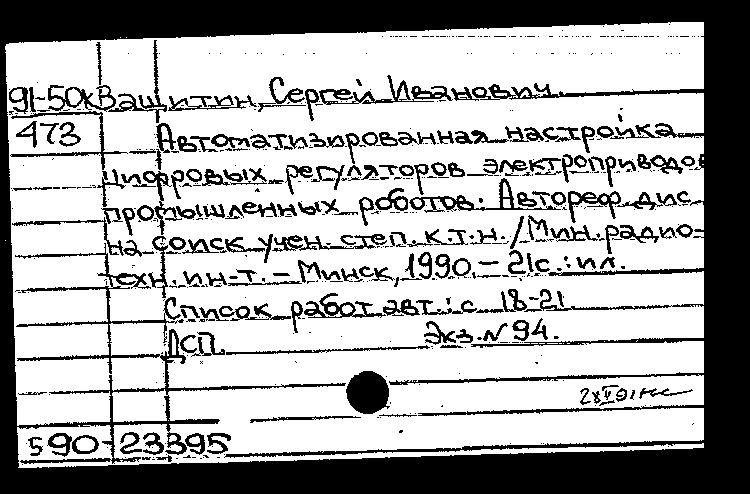 91-50к Ващитин, Сергей Иванович.
473 Автоматизированная настройка
цифровых регуляторов электроприводов
промышленных роботов: Автореф. дис.
на соиск. учен. степ. к.т.н. / Мин. радио-
техн. ин-т. – Минск, 1990. – 21 с.: ил.
Список работ авт.: с. 18-21.
ДСП. Экз. N 94.
590-23395